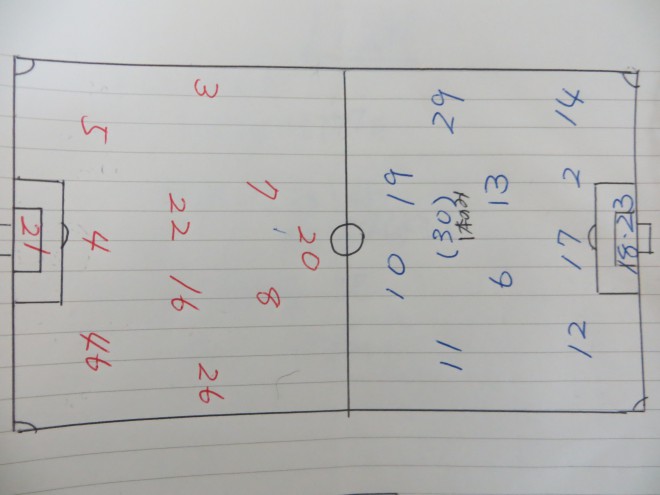 21
5 4 46
3 22 16 26
7 8
20
10 19
11 (30) 29
6 13
12 17 2 14
18·23